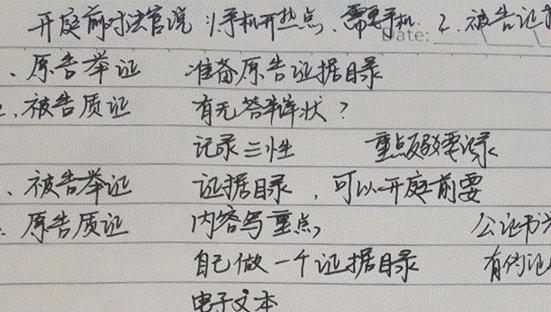 开庭前对法官说 1.手机开热点、需要手机 2.被告证
Date:
、原告举证 准备原告证据目录
2、被告质证 有无答辩状?
记录三性 重点
、被告举证 证据目录,可以开庭前要
原告质证 内容写重点, 公证书
自己做一个证据目录 有
电子文本